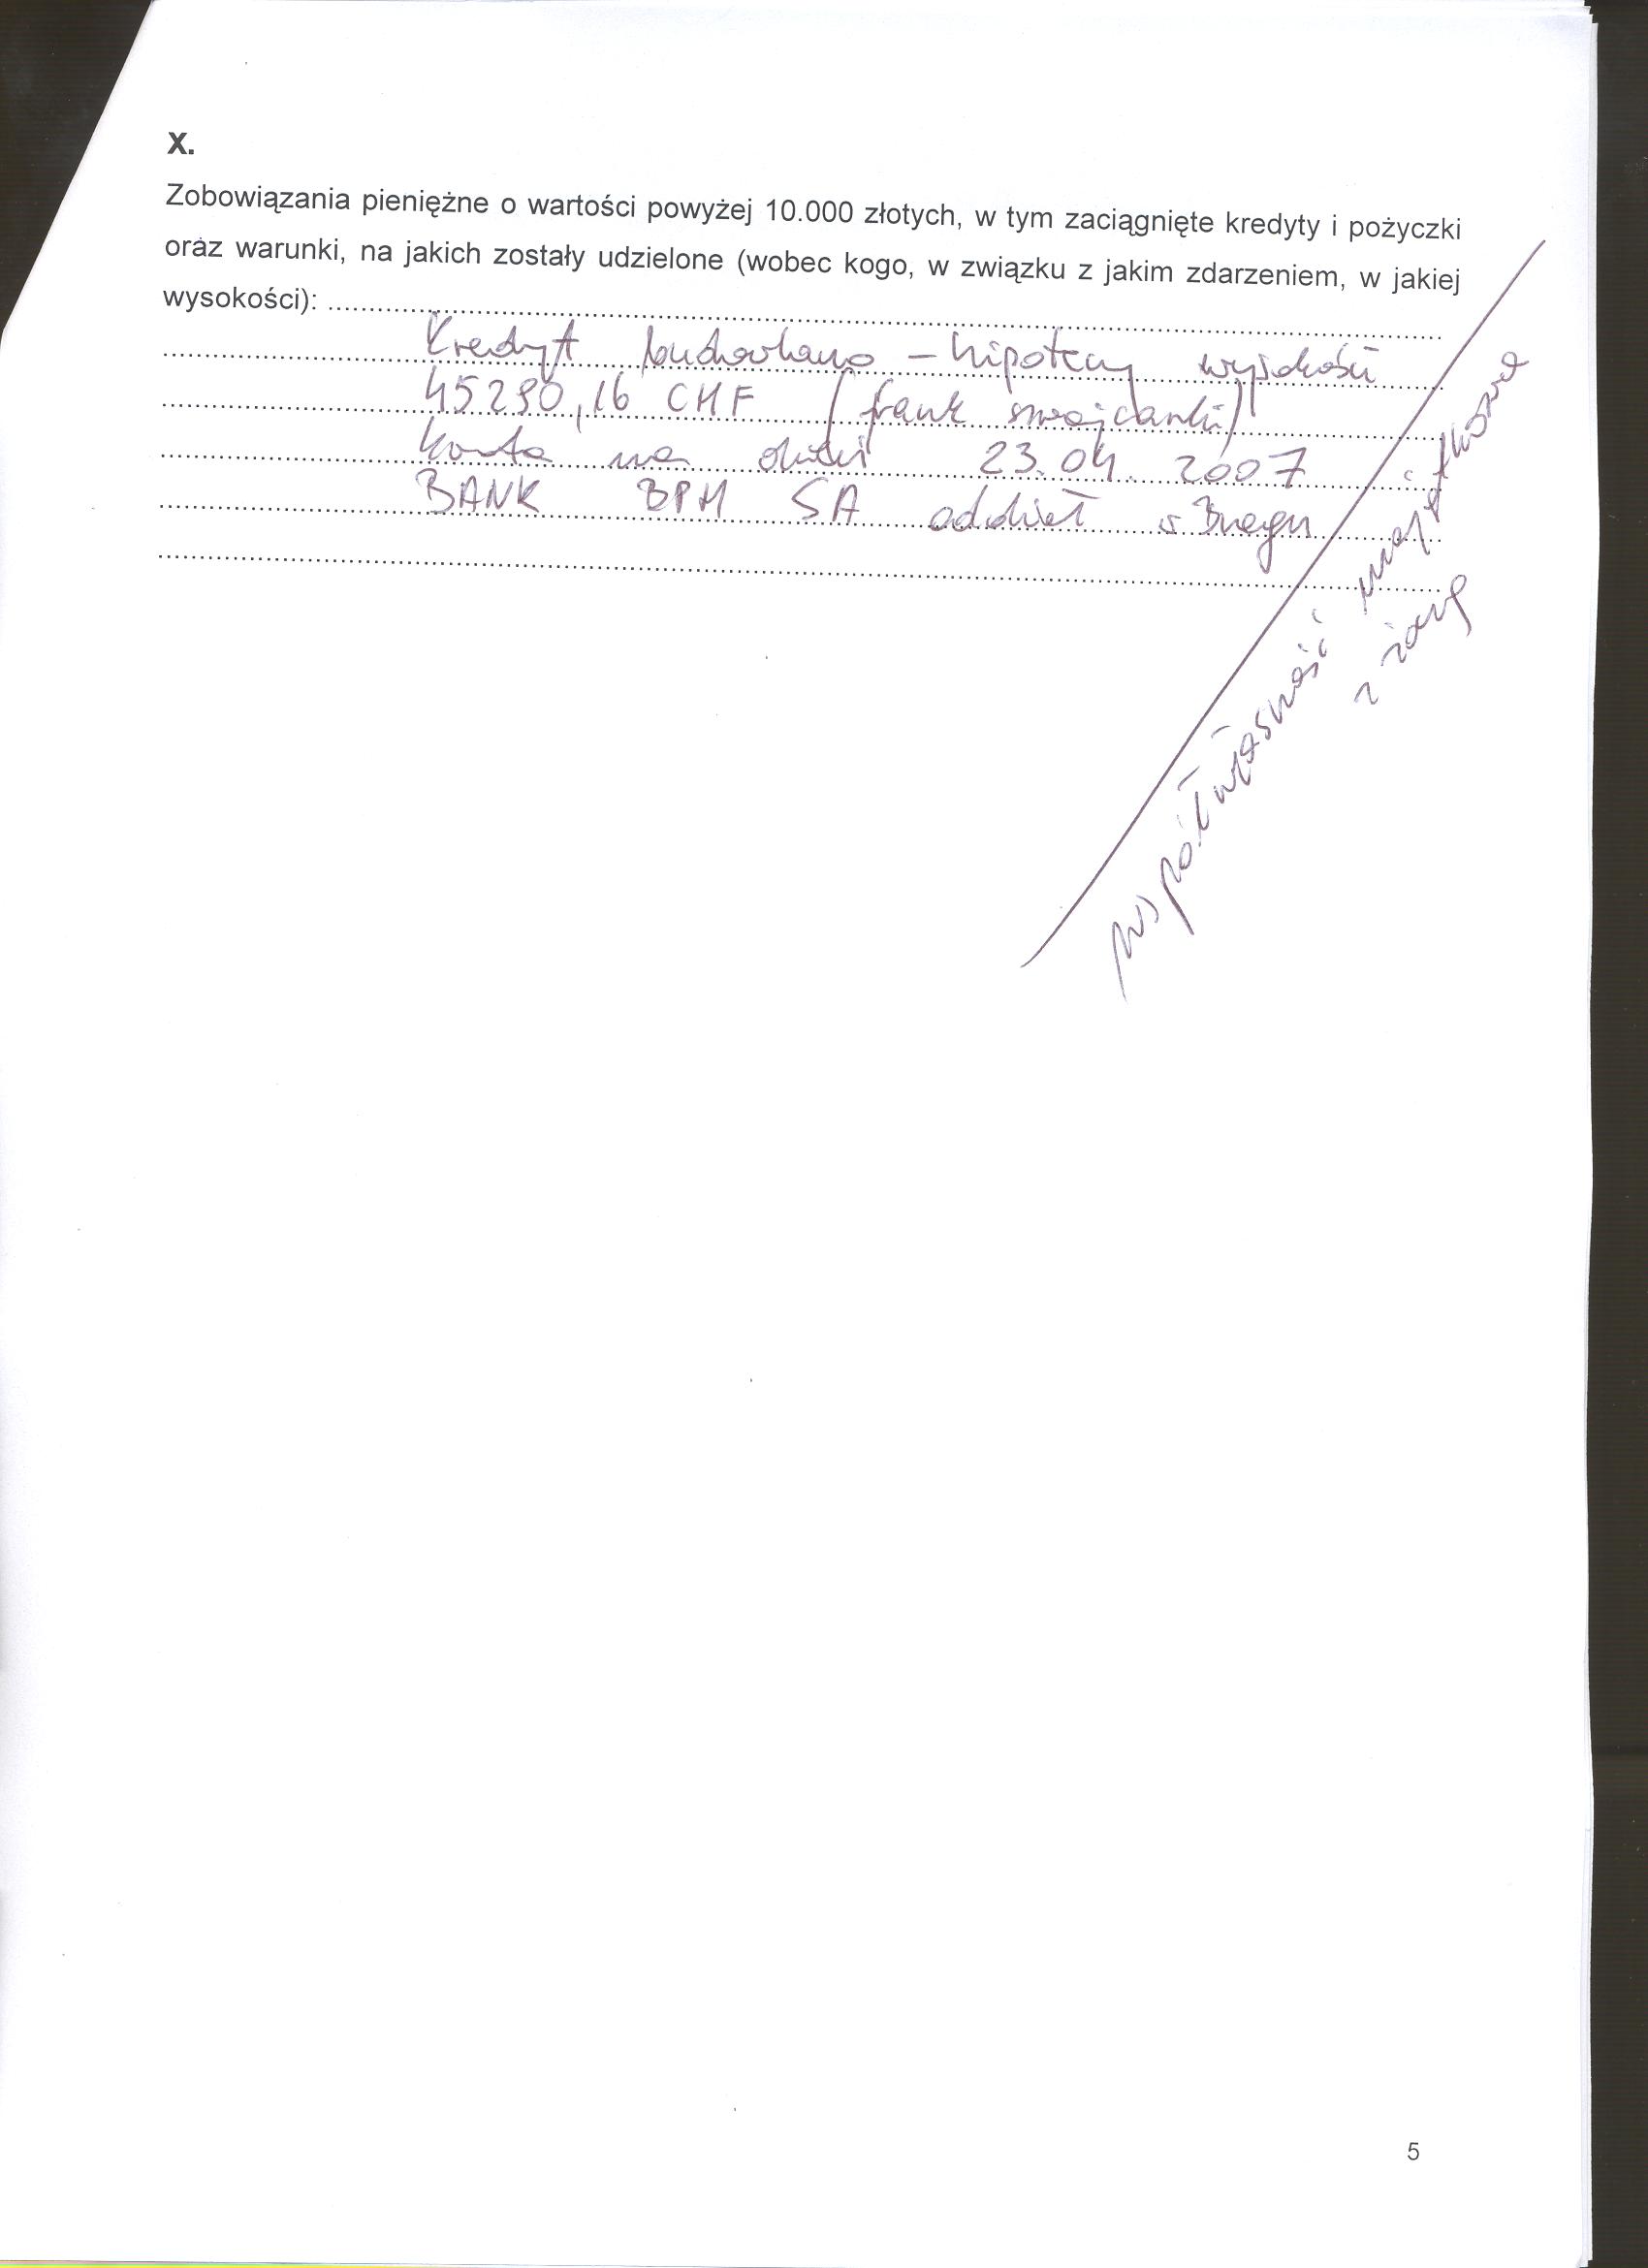 X.
Zobowiązania pieniężne o wartości powyżej 10.000 złotych, w tym zaciągnięte kredyty i pożyczki
oraz warunki, na jakich zostały udzielone (wobec kogo, w związku z jakim zdarzeniem, w jakiej
wysokości):
Kredyt budowlano - hipoteczny wysokość
45290,16 CHF (frank szwajcarski)
kwota na dzień 23.04.2007
BANK BPH SA oddział w Brzegu
współwłasność majątkowa
z żoną
5